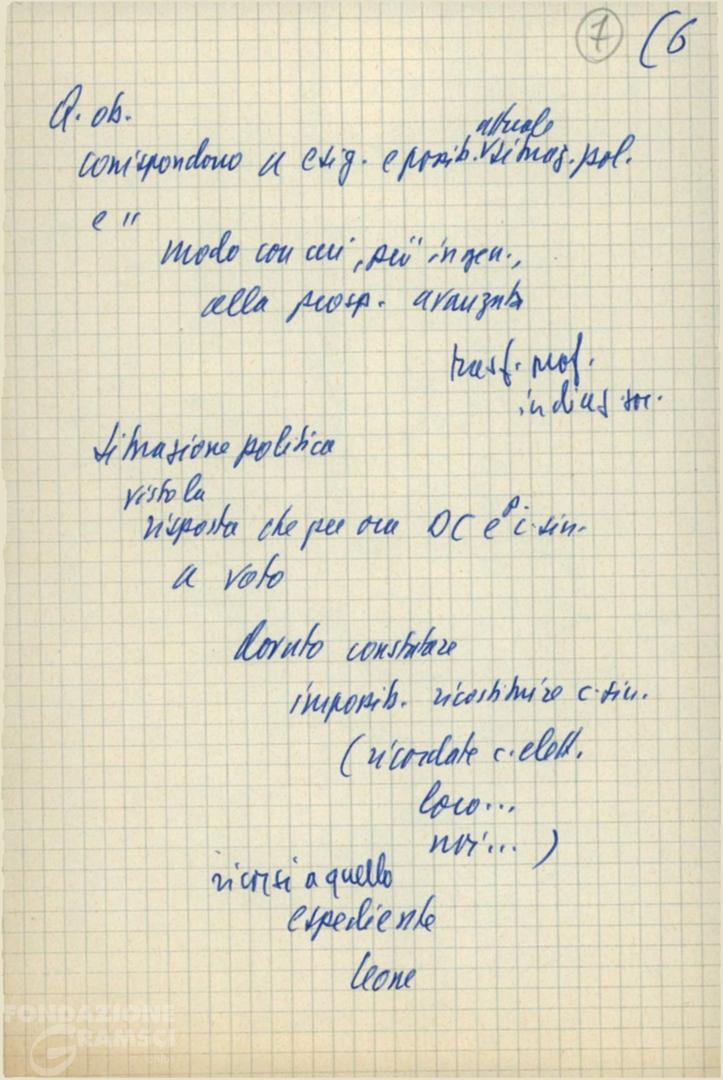 7 (6
Q. ob.
attuale
corrispondono a esig. e possib. situaz. pol.
e "
modo con cui, più in gen.,
alla prosp. avanzata
trasf. prof.
indirizz. soc.
situazione politica
vista la
risposta che per ora DC e p. c. sin.
a voto
dovuto constatare
impossib. ricostituire c. sin.
(ricordate c. elett.
loro...
noi...)
ricorsi a quello
espediente
Leone
FONDAZIONE
GRAMSCI